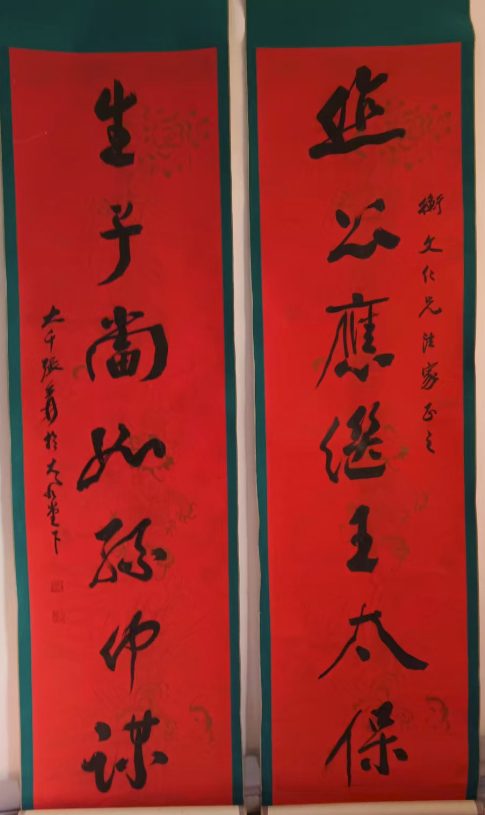 衡文仁兄法家正之
公應繼王太保
生子當如孫仲謀
大千張爰於大風堂下